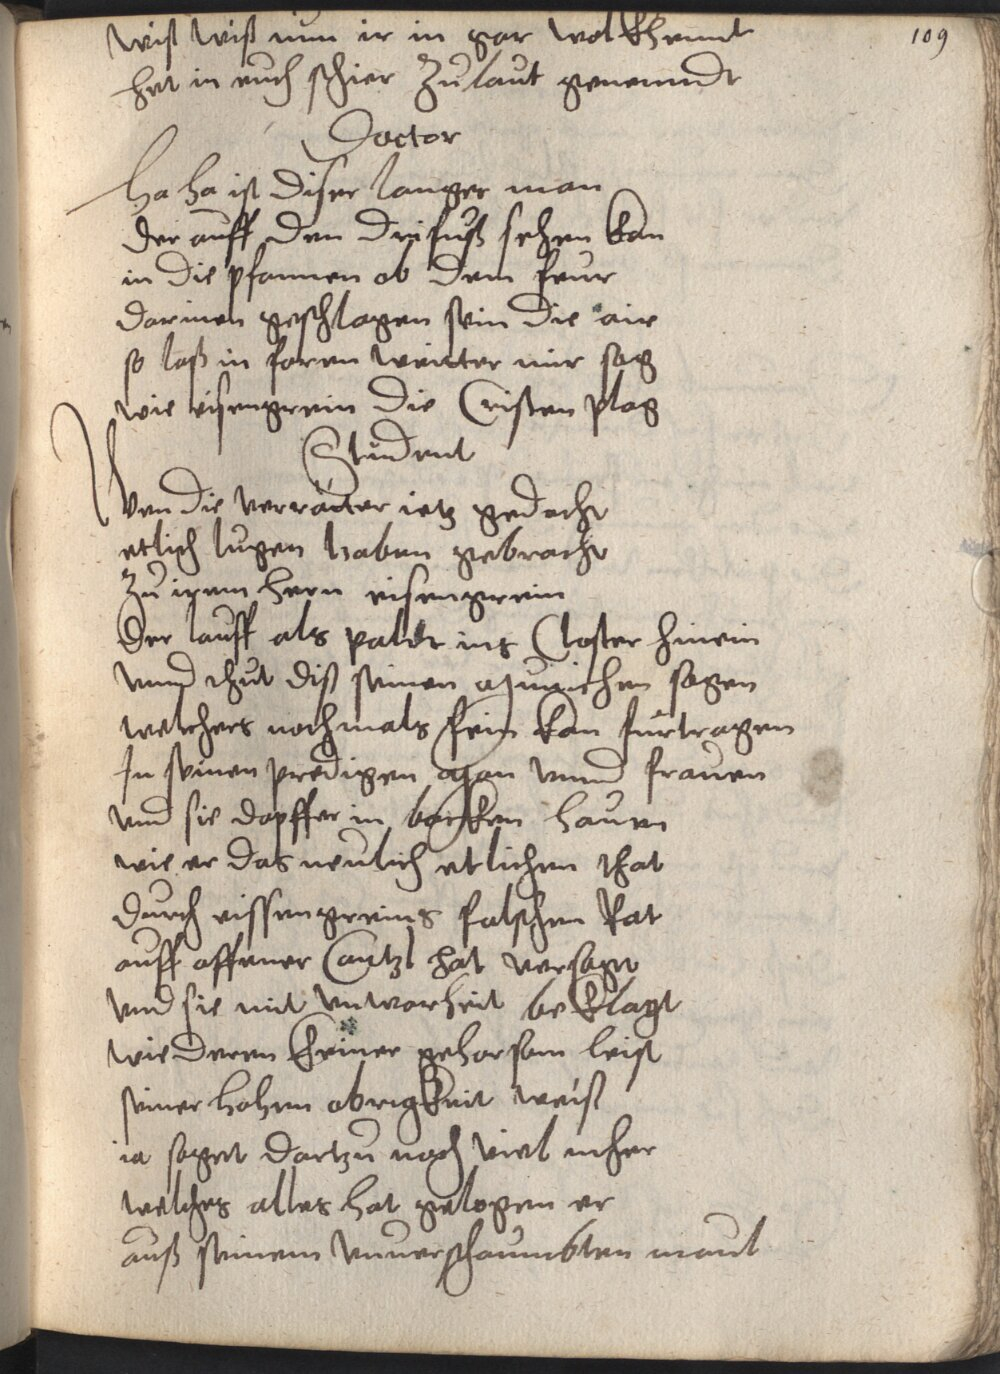 109
wist wist nun ir in gar wol khendt
het in euch schier Zu laut genenndt
Doctor
Ha ha ist diser langer man
der auff den drifuß sehen kan
in die pfannen ob dem feur
darinen geschlagen sein die air
so laß in faren weitter mir sag
wie eisengrein die Cristen plag
Student
Wen die verräter ietz gedacht
etlich lugen haben gebracht
Zu irem hern eisengrein
der lauff als paldt ins Closter hinein
vnnd thut diß seinen Münichen sagen
welchers nochmals fein kan furtragen
In seinen predigen Man vnnd frauen
vnd sie dapffer in backen hauen
wie er das neulich etlichen that
durch eissengreins falschen Rat
auff offener Cantzl hat versagt
vnd sie mit vnwarheit beklagt
wie deren keiner gehorsam leist
seiner hohen obrigkeit weist
ia saget dartzu noch viel meher
welches alles hat gelogen er
auß seinem vnuerschaumbten maul